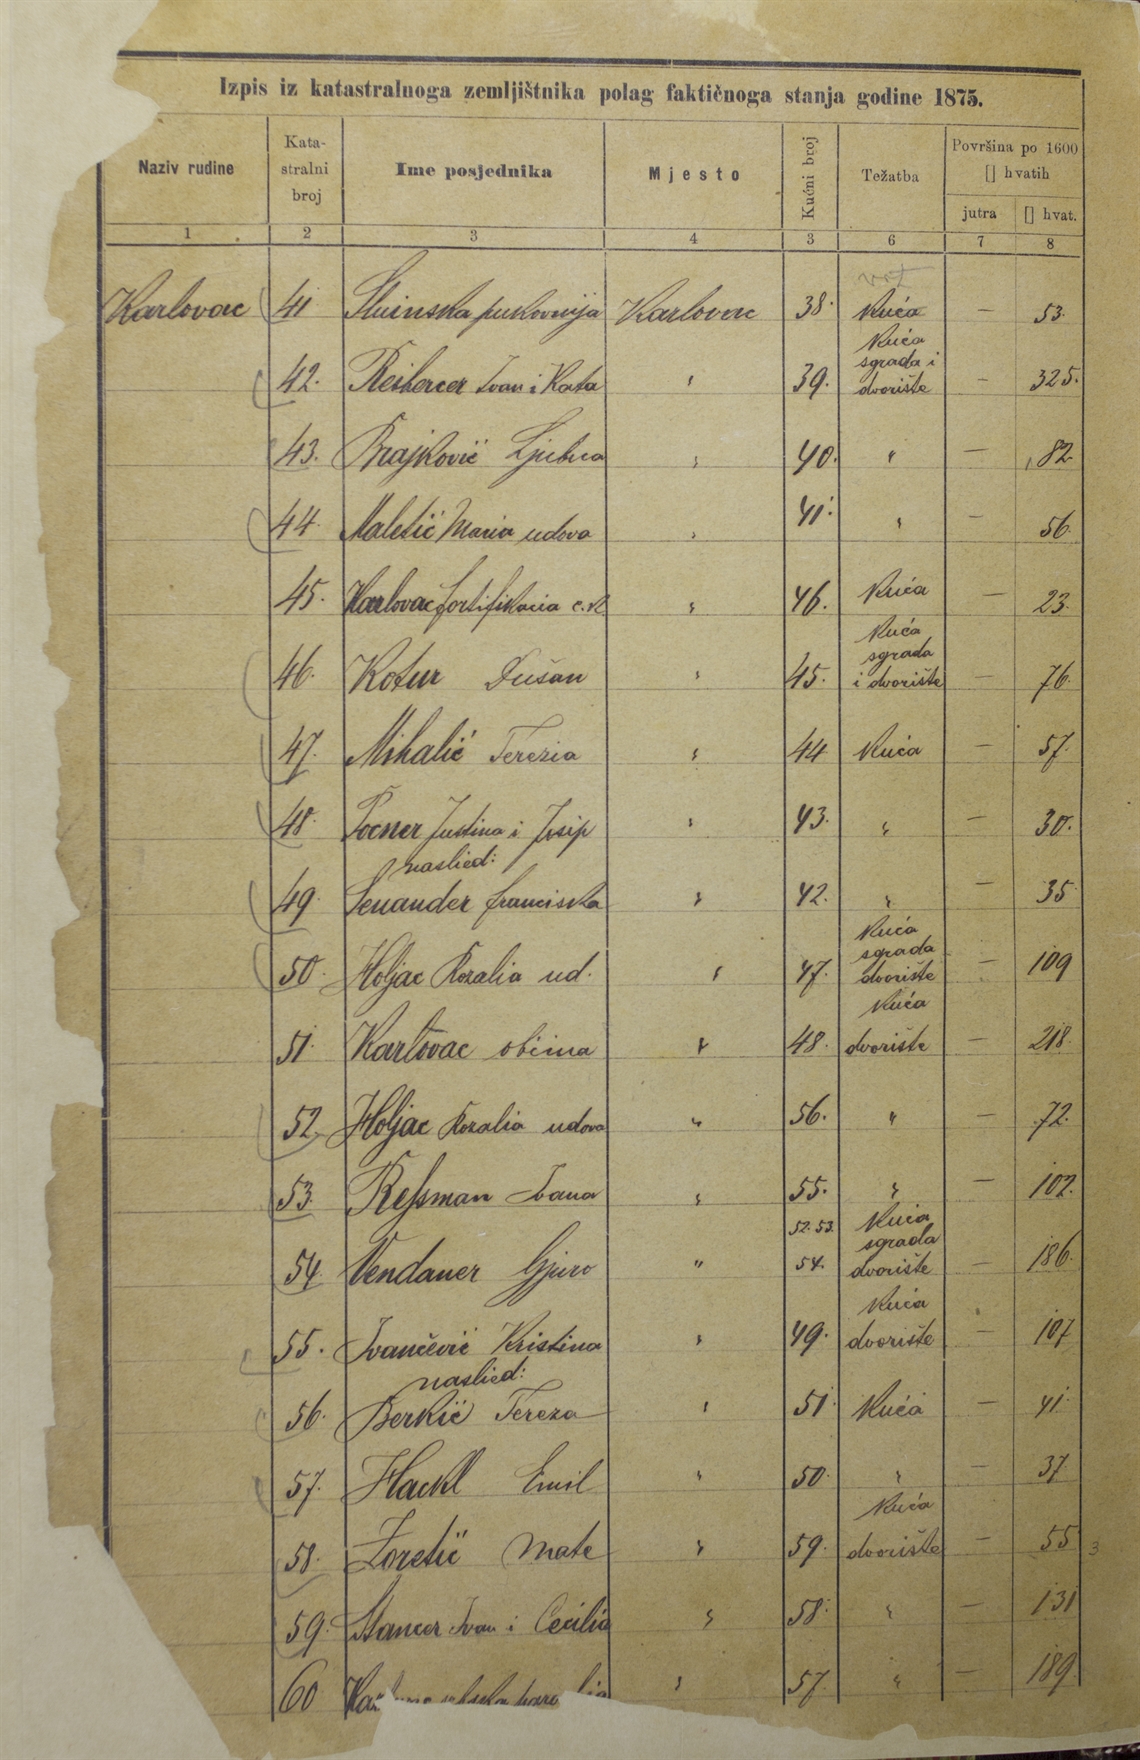 Izpis iz katastralnoga zemljištnika polag faktičnoga stanja godine 1875.
Naziv rudine Katastralni broj Ime posjednika Mjesto Kućni broj Težatba Površina po 1600 [] hvatih
jutra [] hvat.
1 2 3 4 3 6 7 8
vrt
Karlovac 41 Sluinska pukovnija Karlovac 38. Kuća — 53.
Kuća
sgrada i
42. Ivan i Kata " 39. dvorište — 325.
43. Brajković Ljubica " 40. " — 82.
44. Maletić Maria udova " 41. " — 56.
45. Karlovac fortifikacia c. k. " 46. Kuća — 23.
Kuća
sgrada
46. Kotur Dušan " 45. i dvorište — 76.
47. Mihalić Terezia " 44 Kuća — 57.
48. Pocner Justina i Josip " 43. " — 30.
naslied:
49. Franciska " 42. " — 35
Kuća
sgrada
50. Holjac Rozalia ud. " 47. dvorište — 109
Kuća
51. Karlovac občina " 48. dvorište — 218.
52. Holjac Rozalia udova " 56. " — 72.
53. Ressman Ivana " 55. " — 102.
52. 53. Kuća
sgrada
54. Vendauer Gjuro " 54. dvorište — 186.
Kuća
55. Ivančević Kristina " 49. dvorište — 107
naslied:
56. Berkić Tereza " 51. Kuća — 41.
57. Hackl Emil " 50. " — 37
Kuća
58. Zoretić Mate " 59. dvorište — 55 3
59. Stancer Ivan i Cecilia " 58. " — 131
60 " 57. " — 189.